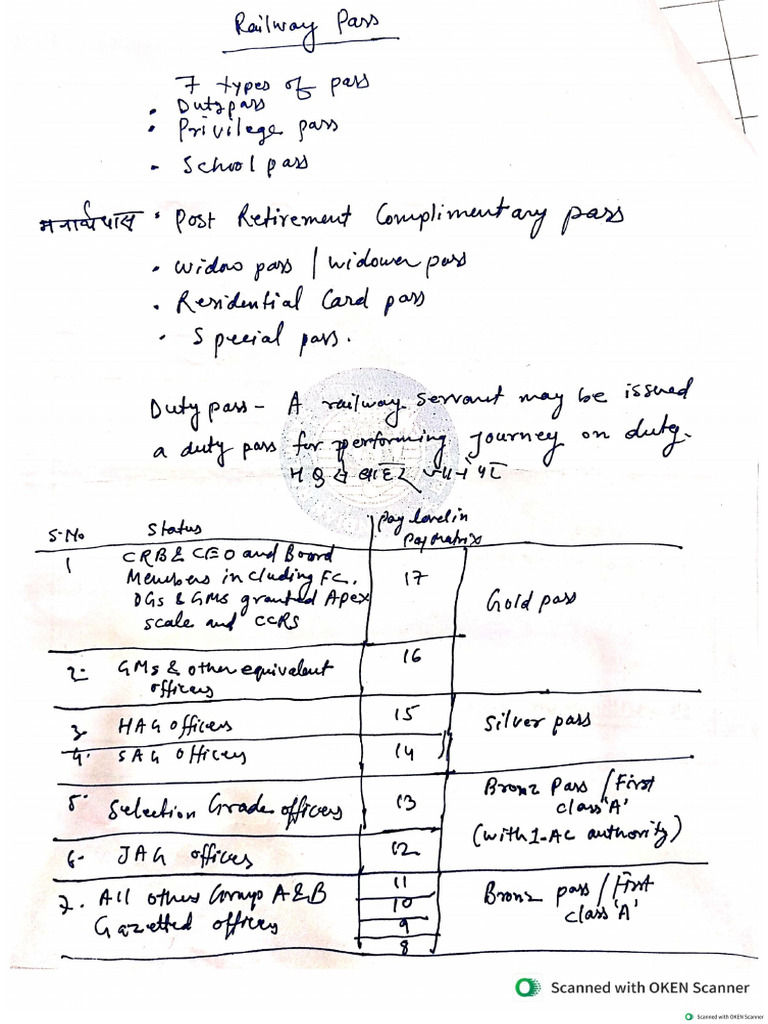 Railway Pass
7 types of pass
• Duty pass
• Privilege pass
• School pass
मनार्थ पास • Post Retirement Complimentary pass
• widow pass / widower pass
• Residential Card pass
• Special pass.
Duty pass - A railway servant may be issued
a duty pass for performing journey on duty.
S.No Status Pay level in Pay matrix
1 CRB & CEO and Board 17 Gold pass
Members including FC.
DGs & GMs granted Apex
scale and CCRS
2- GMs & other equivalent 16
officers
3. HAG officers 15 Silver pass
4. SAG officers 14
5. Selection Grade officers 13 Bronz Pass / First class 'A'
(with 1-AC authority)
6- JAG offices 12
7. All other Group A & B 11 Bronz pass / First class 'A'
Gazetted offices 10
9
8
Scanned with OKEN Scanner
Scanned with OKEN Scanner